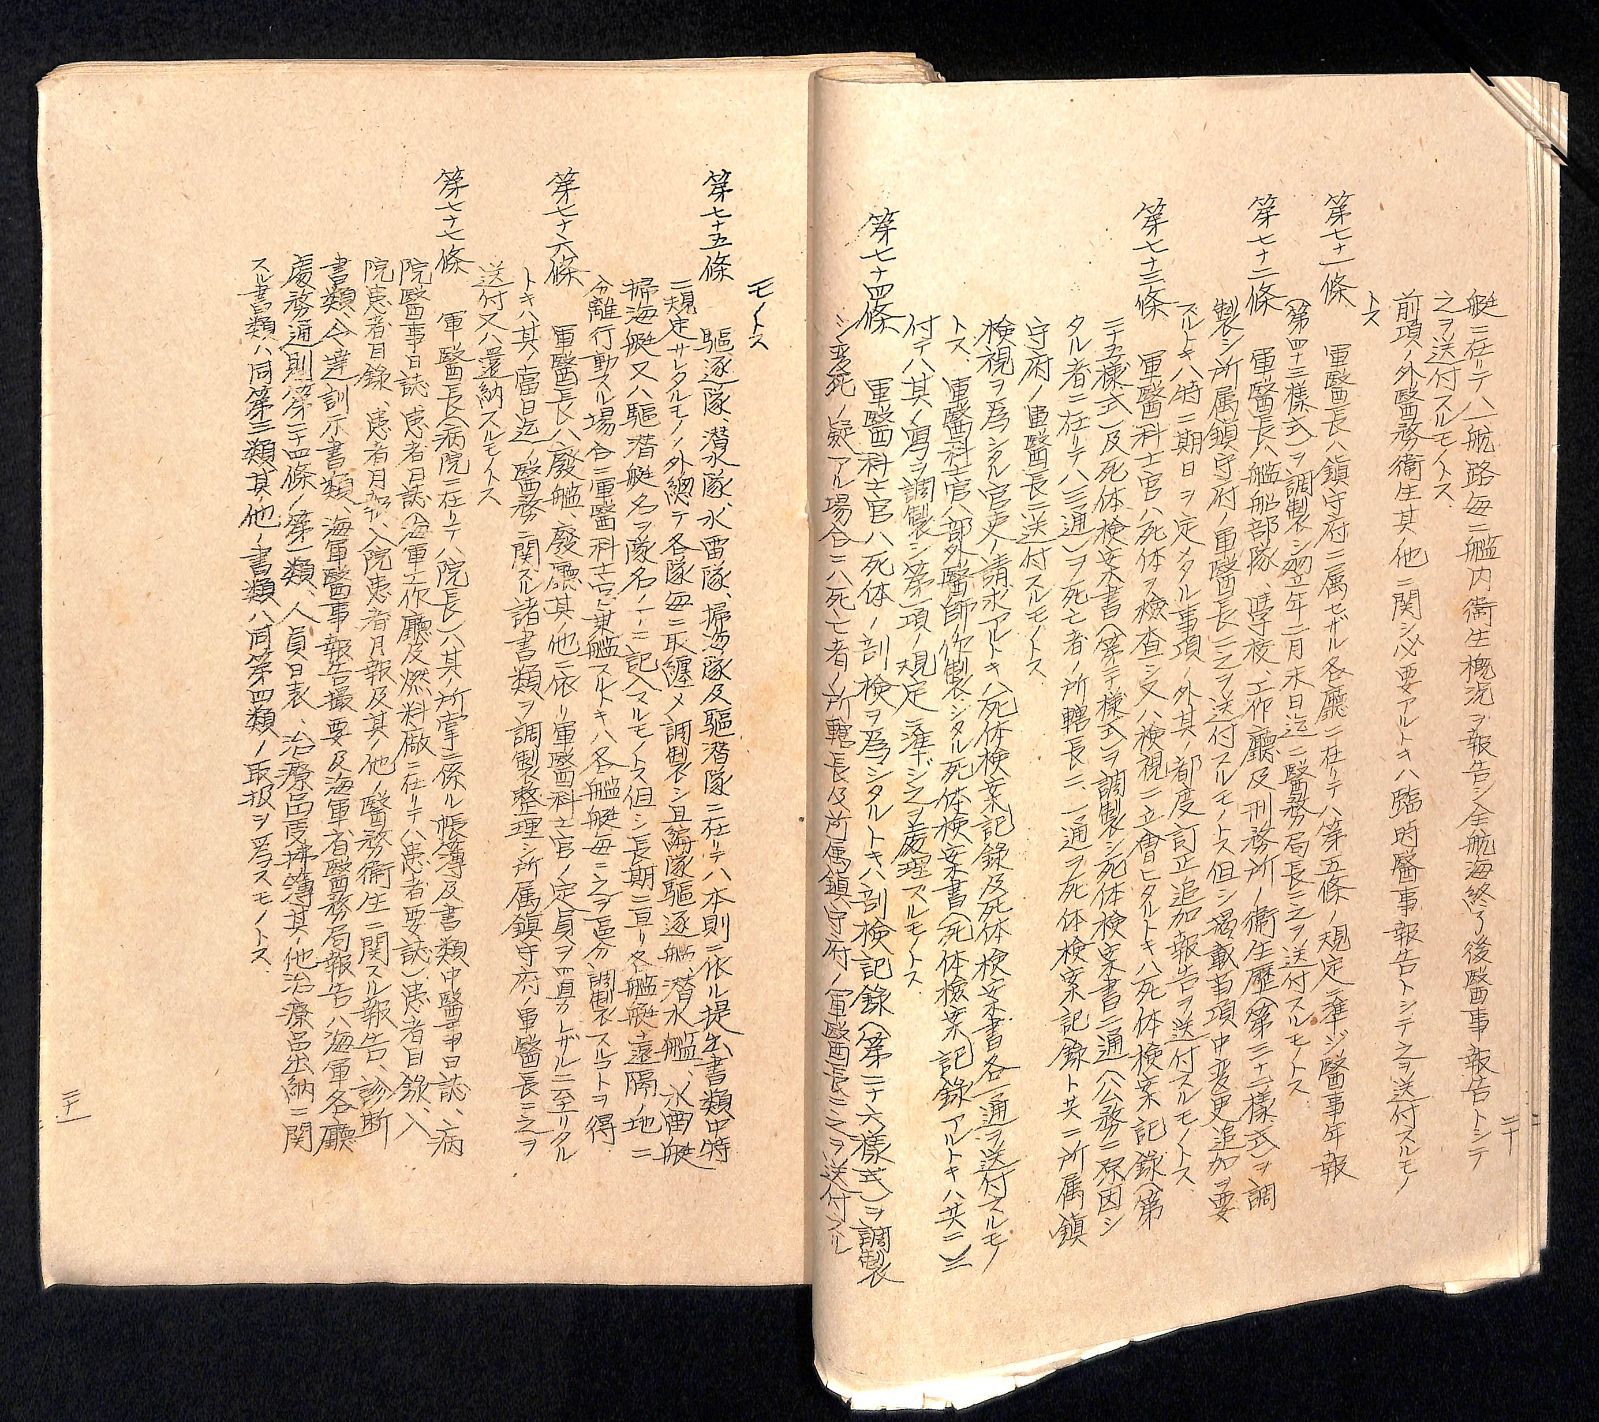 艇ニ在リテハ一航路毎ニ艦内衛生概況ヲ報告シ全航海終了後醫事報告トシテ
之ヲ送付スルモノトス
前項ノ外醫務衛生其ノ他ニ関シ必要アルトキハ臨時醫事報告トシテ之ヲ送付スルモノ
トス
第七十一條 軍醫長ハ鎮守府ニ属セザル各廳ニ在リテハ第五條ノ規定ニ準ジ醫事年報
(第四十三樣式)ヲ調製シ翌年二月末日迄ニ醫務局長ニ之ヲ送付スルモノトス
第七十二條 軍醫長ハ艦船部隊、學校、工作廳及刑務所ノ衛生歴(第二十一樣式)ヲ調
製シ所属鎮守府ノ軍醫長ニ之ヲ送付スルモノトス但シ掲載事項中変更追加ヲ要
スルトキハ時ニ期日ヲ定メタル事項ノ外其ノ都度訂正追加報告ヲ送付スルモノトス
第七十三條 軍醫科士官ハ死体ヲ檢査シ又ハ檢視ニ立會ヒタルトキハ死体檢案記錄(第
二十五樣式)及死体檢案書(第二十樣式)ヲ調製シ死体檢案書二通(公務ニ原因シ
タル者ニ在リテハ三通)ヲ死亡者ノ所轄長ニ、一通ヲ死体檢案記錄ト共ニ所属鎮
守府ノ軍醫長ニ送付スルモノトス
檢視ヲ爲シタル官吏ノ請求アルトキハ死体檢案記錄及死体檢案書各一通ヲ送付スルモノ
トス 軍醫科士官ハ部外醫師ノ作製シタル死体檢案書(死体檢案記錄アルトキハ共ニ)ニ
付テハ其ノ寫ヲ調製シ第一項ノ規定ニ準ジ之ヲ處理スルモノトス
第七十四條 軍醫科士官ハ死体ノ剖檢ヲ爲シタルトキハ剖檢記錄(第二十六樣式)ヲ調製
シ変死ノ疑アル場合ニハ死亡者ノ所轄長及所属鎮守府ノ軍醫長ニ之ヲ送付スル
二十
モノトス
第七十五條 驅逐隊、潜水隊、水雷隊、掃海隊及驅潜隊ニ在リテハ本則ニ依ル提出書類中特
ニ規定サレタルモノノ外總テ各隊毎ニ取纏メ調製シ且編隊驅逐艦、潜水艦、水雷艇
掃海艇又ハ驅潜艇名ヲ隊名ノ下ニ記入スルモノトス但シ長期ニ亘リ各艦艇遠隔ノ地ニ
分離行動スル場合ニ軍醫科士官乗艦スルトキハ各艦艇毎ニ之ヲ區分調製スルコトヲ得
第七十六條 軍醫長ハ廢艦、廢廳其ノ他ニ依リ軍醫科士官ノ定員ヲ置カレザルニ至リタル
トキハ其ノ當日迄ノ醫務ニ関スル諸書類ヲ調製整理シ所属鎮守府ノ軍醫長ニ之ヲ
送付又ハ還納スルモノトス
第七十七條 軍醫長(病院ニ在リテハ院長)ハ其ノ所掌ニ係ル帳簿及書類中醫事日誌、病
院醫事日誌、患者日誌(海軍工作廳及燃料廠ニ在リテハ患者要誌)、患者目錄、入
院患者目錄、患者月報、入院患者月報及其ノ他ノ醫務衛生ニ関スル報告、診断
書類、令達訓示書類、海軍醫事報告撮要及海軍省醫務局報告ハ海軍各廳
處務通則第二十四條ノ第一類、人員日表、治療品受拂簿其ノ他治療品出納ニ関
スル書類ハ同第三類其ノ他ノ書類ハ同第四類ノ取扱ヲ爲スモノトス
二十一